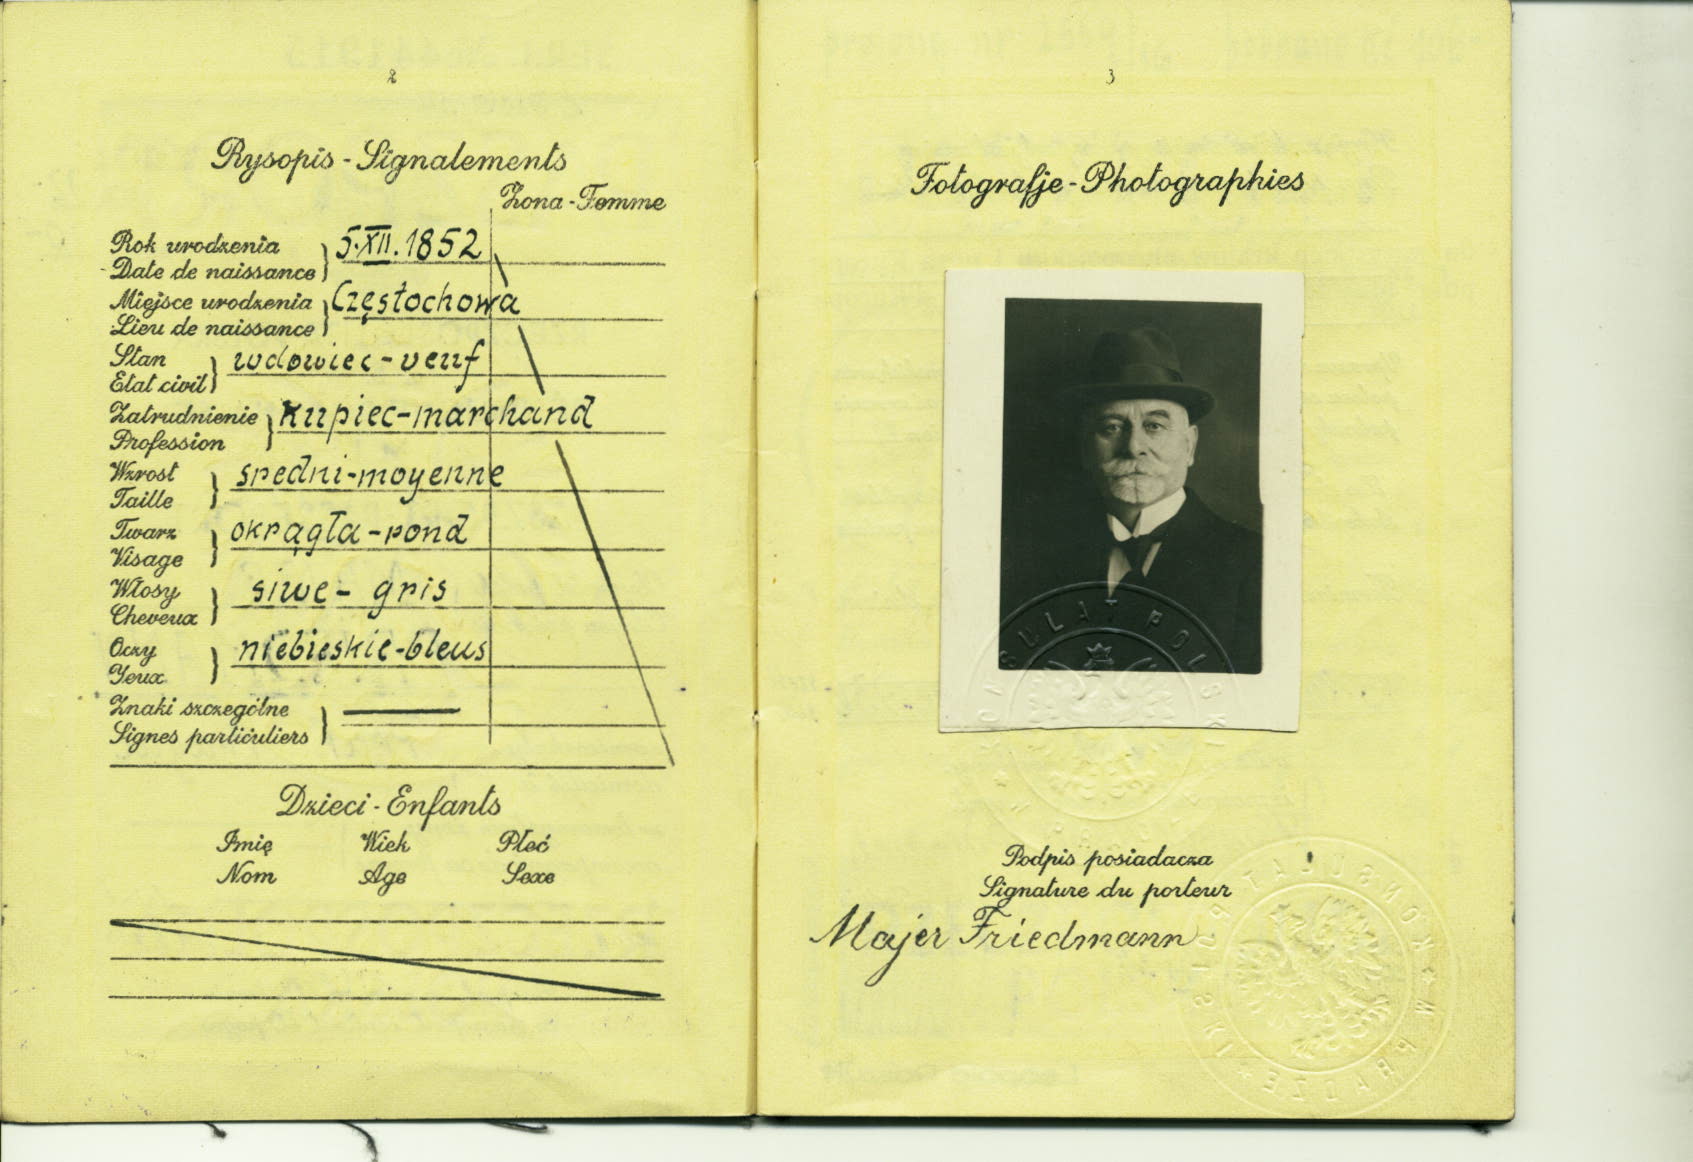 2
Rysopis - Signalements
Żona - Femme
Rok urodzenia
Date de naissance
5.XII.1852
Miejsce urodzenia
Lieu de naissance
Częstochowa
Stan
Etat civil
wdowiec-veuf
Zatrudnienie
Profession
kupiec-marchand
Wzrost
Taille
średni-moyenne
Twarz
Visage
okrągła-rond
Włosy
Cheveux
siwe - gris
Oczy
Yeux
niebieskie-bleus
Znaki szczególne
Signes particuliers
Dzieci - Enfants
Imię Wiek Płeć
Nom Age Sexe
3
Fotografje - Photographies
KONSULAT POLSKI
Podpis posiadacza
Signature du porteur
Majer Friedmann
KONSULAT POLSKI W PRADZE